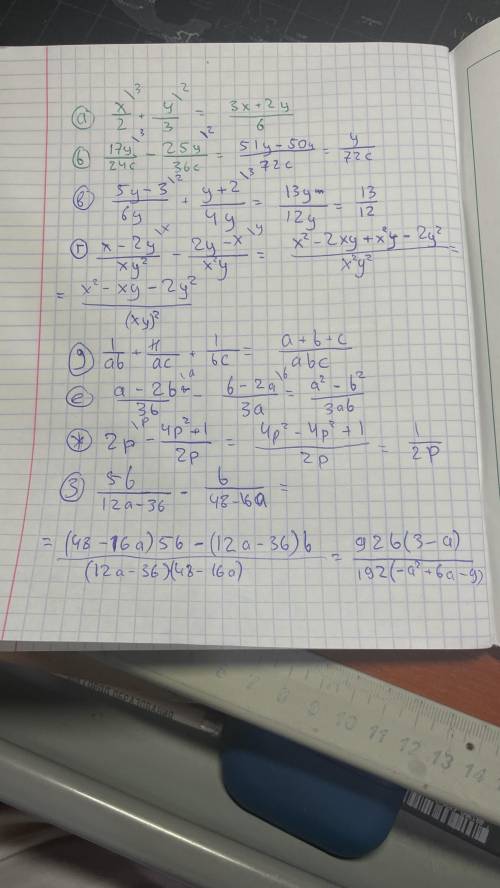 а) x/2 \3 + y/3 \2 = (3x+2y)/6
б) 17y/24c \3 − 25y/36c \2 = (51y−50y)/72c = y/72c
в) (5y−3)/6y \2 + (y+2)/4y \3 = 13y/12y = 13/12
г) (x−2y)/xy² \x − (2y−x)/x²y \y = (x²−2xy+x²y−2y²)/x²y² =
= (x²−xy−2y²)/(xy)²
д) 1/ab + 1/ac + 1/bc = (a+b+c)/abc
е) (a−2b)/3b \a − (b−2a)/3a \b = (a²−b²)/3ab
ж) 2p \p − (4p²+1)/2p = (4p²−4p²+1)/2p = 1/2p
з) 5b/(12a−36) − b/(48−16a) =
= ((48−16a)5b−(12a−36)b)/((12a−36)(48−16a)) = 92b(3−a)/192(−a²+6a−9)
0 1 2 8 9 10 11 12 13 14